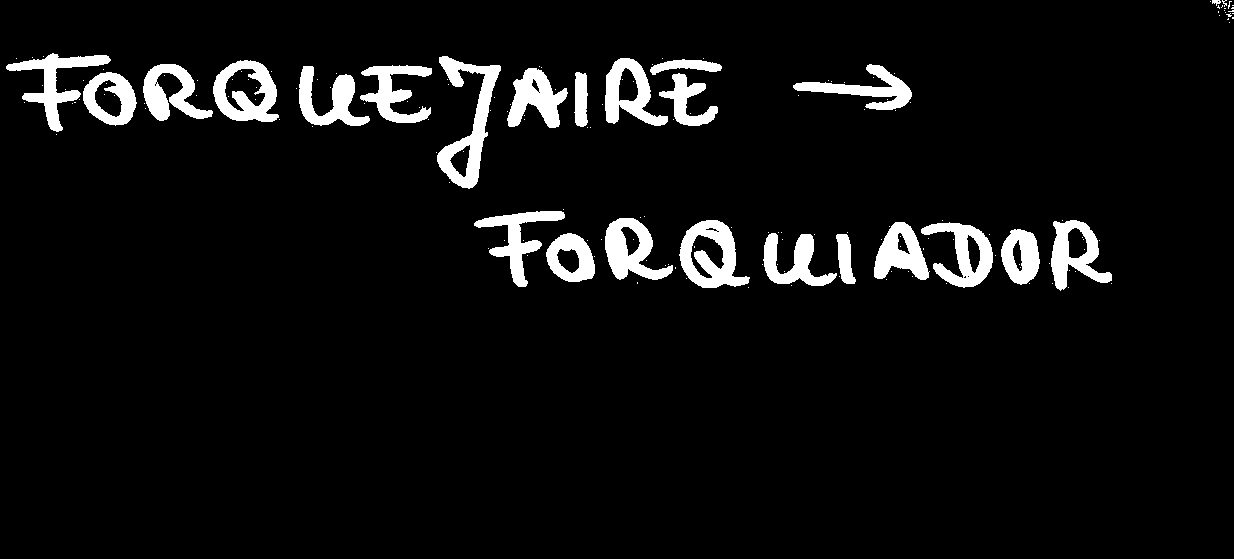 FORQUEJAIRE →
FORQUIADOR